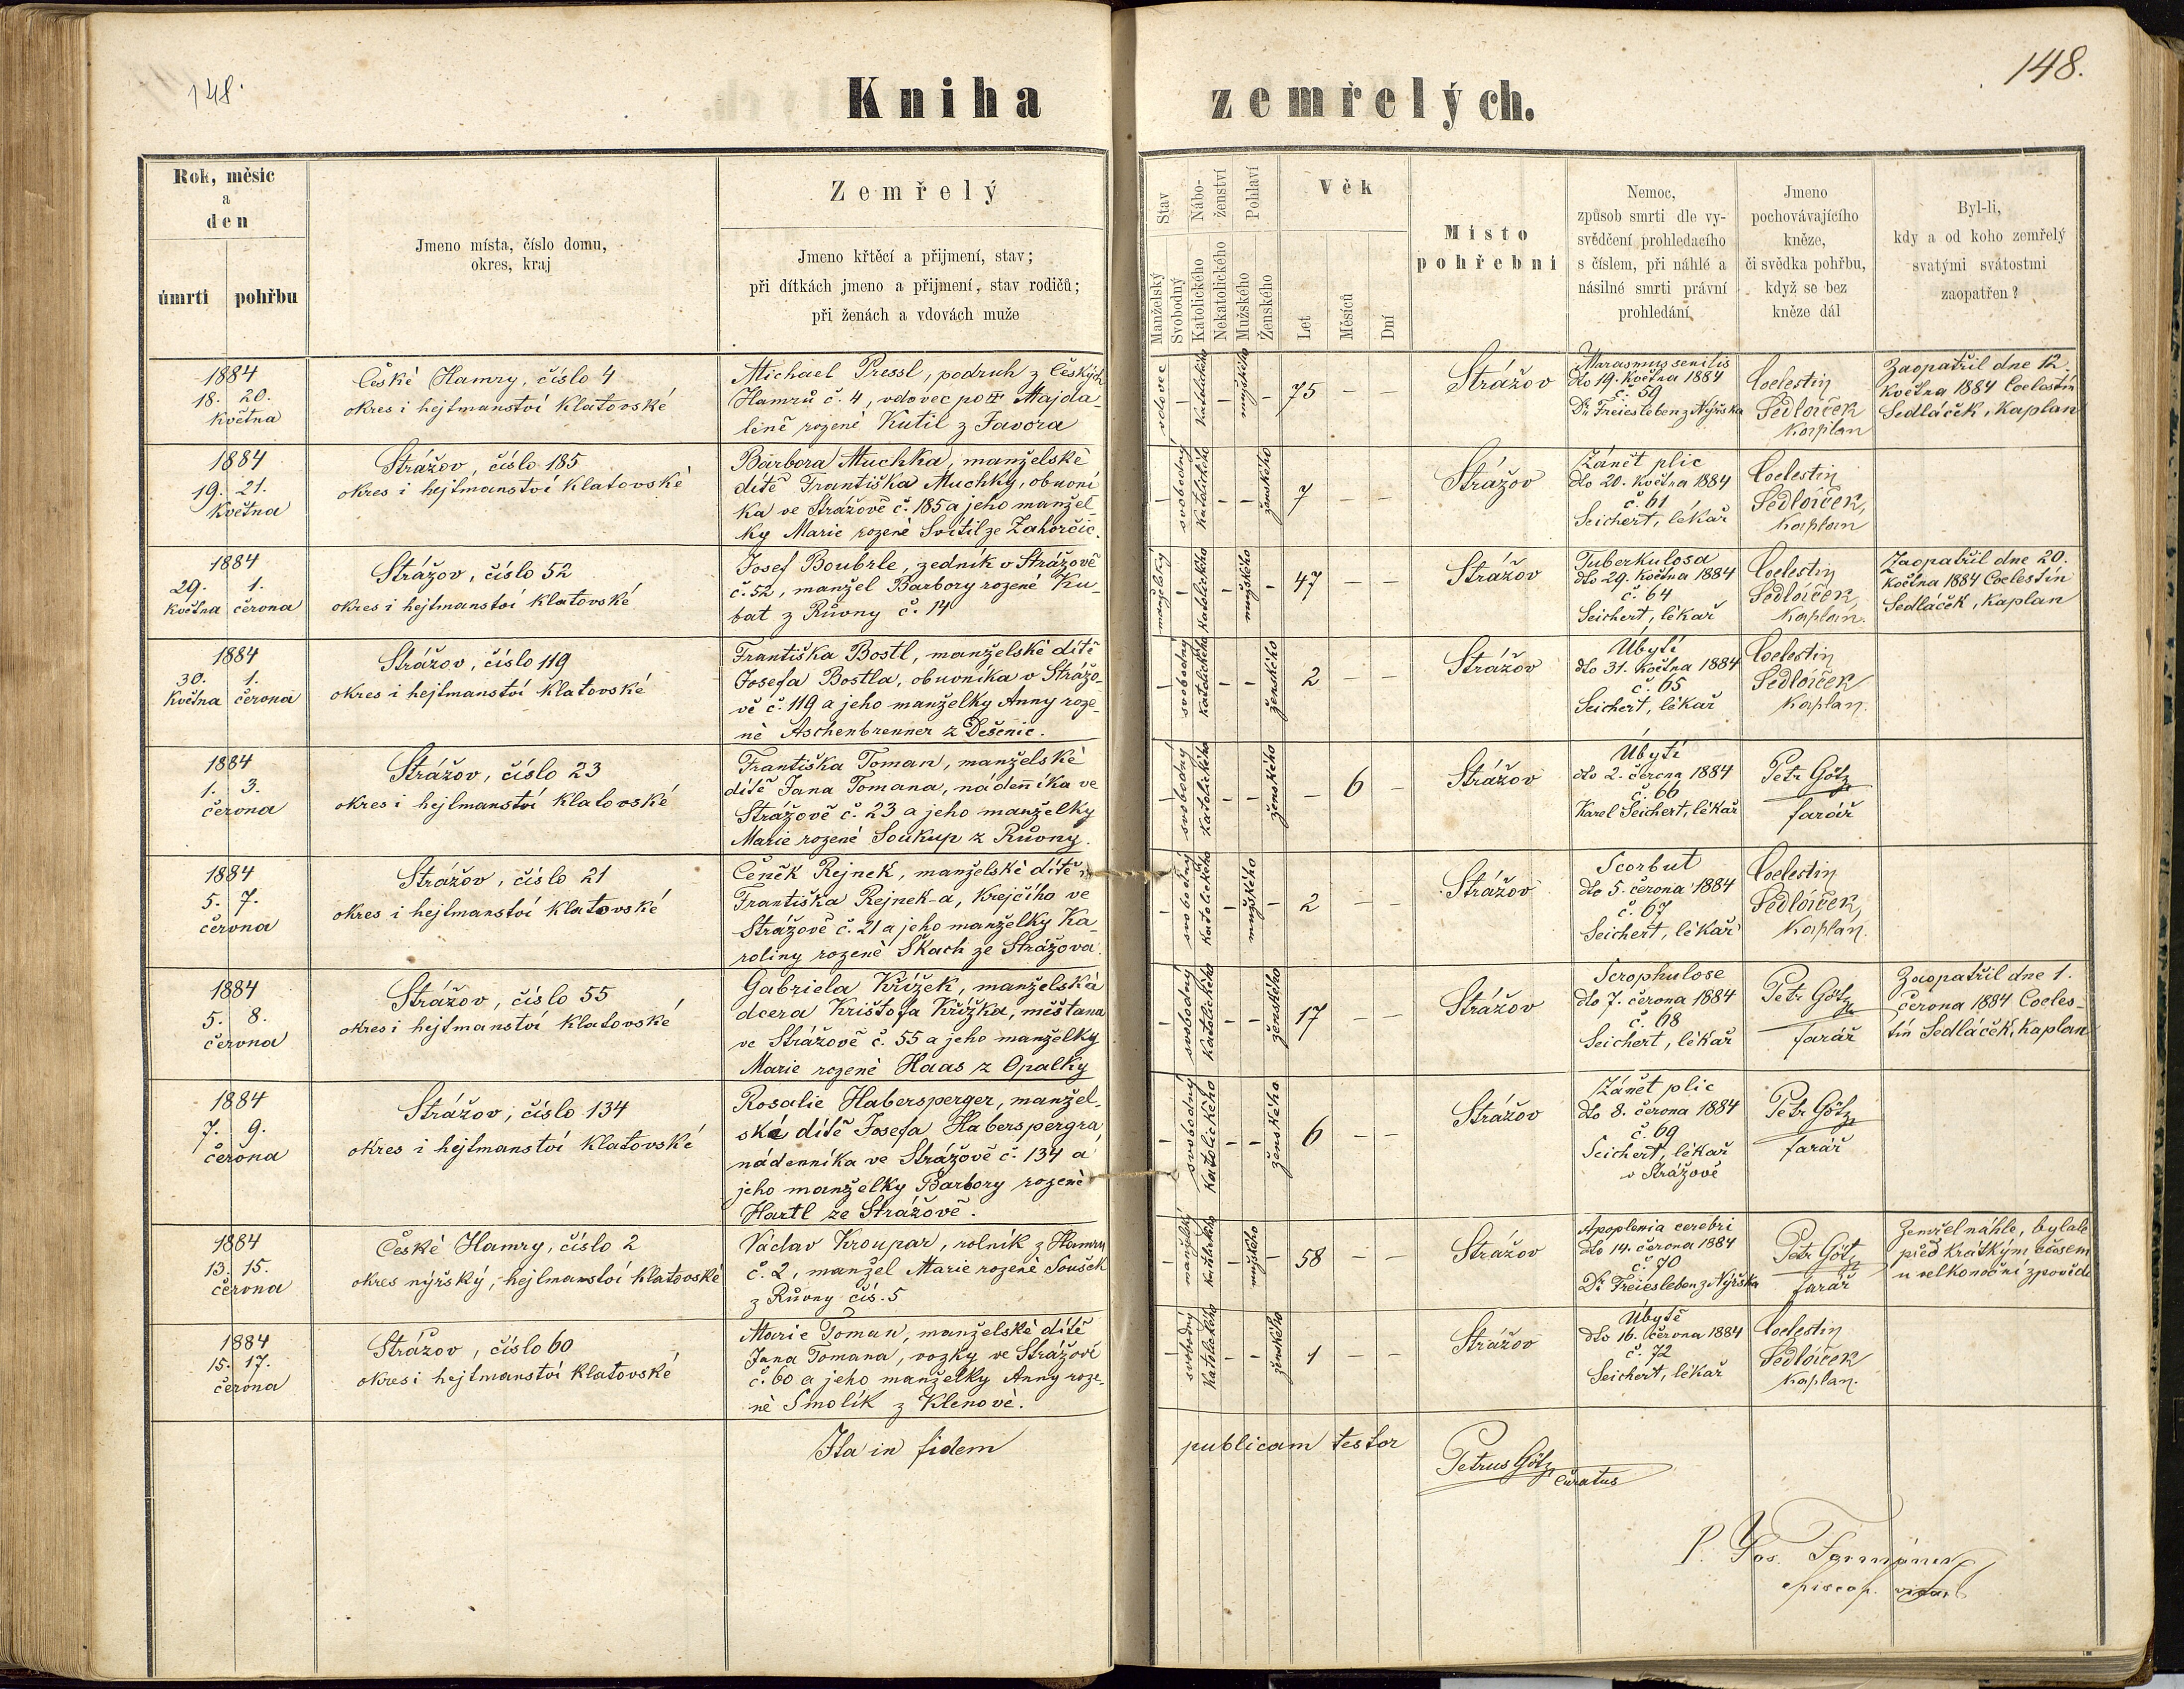 148.
148.
Kniha zemřelých.
Rok, měsíc
a
den
úmrtí pohřbu
Jmeno místa, číslo domu,
okres, kraj
Zemřelý
Jmeno křtěcí a přijmení, stav;
při dítkách jmeno a přijmení, stav rodičů;
při ženách a vdovách muže
Stav
Manželský
Svobodný
Náboženství
Katolického
Nekatolického
Pohlaví
Mužského
Ženského
Věk
Let
Měsíců
Dní
Místo
pohřební
Nemoc,
způsob smrti dle vy-
svědčení prohledacího
s číslem, při náhlé a
násilné smrti právní
prohledání
Jmeno
pochovávajícího
kněze,
či svědka pohřbu,
když se bez
kněze dál
Byl-li,
kdy a od koho zemřelý
svatými svátostmi
zaopatřen?
1884
18. 20.
května
České Hamry, číslo 4
okres i hejtmanství Klatovské
Michael Pressl, podruh z Českých
Hamrů č. 4, vdovec po Majda-
leně rozené Kutil z Javora
vdovec - katolického - mužského - 75 - -
Strážov
Marasmus senilis
dto 19. května 1884
č. 59
Dr Freiesleben z Nýrska
Coelestin
Sedláček
Kaplan
Zaopatřil dne 12.
května 1884 Coelestin
Sedláček, Kaplan
1884
19. 21.
května
Strážov, číslo 185
okres i hejtmanství Klatovské
Barbora Muchka, manželské
dítě Františka Muchky, obuvní
ka ve Strážově č. 185 a jeho manžel-
ky Marie rozené Svitil ze Zahorčic.
- svobodný katolického - - ženského 7 - -
Strážov
Zánět plic
dto 20. května 1884
č. 61
Seichert, lékař
Coelestin
Sedláček,
Kaplan
1884
29. 1.
května června
Strážov, číslo 52
okres i hejtmanství Klatovské
Josef Boubrle, zedník v Strážově
č. 52, manžel Barbory rozené Ku-
bat z Růvny č. 14
manželský - katolického - mužského - 47 - -
Strážov
Tuberkulosa
dto 29. května 1884
č. 64
Seichert, lékař
Coelestin
Sedláček
Kaplan.
Zaopatřil dne 20.
května 1884 Coelestin
Sedláček, Kaplan
1884
30. 1.
května června
Strážov, číslo 119
okres i hejtmanství Klatovské
Františka Bostl, manželské dítě
Josefa Bostla, obuvníka v Strážo-
vě č. 119 a jeho manželky Anny roze-
né Aschenbrenner z Dešenic.
- svobodný katolického - - ženského 2 - -
Strážov
Úbytí
dto 31. května 1884
č. 65
Seichert, lékař
Coelestin
Sedláček
Kaplan.
1884
1. 3.
června
Strážov, číslo 23
okres i hejtmanství Klatovské
Františka Toman, manželské
dítě Jana Tomana, nádenníka ve
Strážově č. 23 a jeho manželky
Marie rozené Soukup z Růvny.
- svobodný katolického - - ženského - 6 -
Strážov
Úbytí
dto 2. června 1884
č. 66
Karel Seichert, lékař
Petr Götz
farář
1884
5. 7.
června
Strážov, číslo 21
okres i hejtmanství Klatovské
Čeněk Rejnek, manželské dítě
Františka Rejnek-a, krejčího ve
Strážově č. 21 a jeho manželky Ka-
roliny rozené Skach ze Strážova.
- svobodný katolického - mužského - 2 - -
Strážov
Scorbut
dto 5. června 1884
č. 67
Seichert, lékař
Coelestin
Sedláček,
Kaplan.
1884
5. 8.
června
Strážov, číslo 55
okres i hejtmanství Klatovské
Gabriela Křížek, manželská
dcera Krištofa Křížka, měštana
ve Strážově č. 55 a jeho manželky
Marie rozené Haas z Opalky
- svobodný katolického - - ženského 17 - -
Strážov
Scrophulose
dto 7. června 1884
č. 68
Seichert, lékař
Petr Götz
farář
Zaopatřil dne 1.
června 1884 Coeles-
tin Sedláček, Kaplan
1884
7. 9.
června
Strážov, číslo 134
okres i hejtmanství Klatovské
Rosalie Habersperger, manžel-
ské dítě Josefa Haberspergra
nádenníka ve Strážově č. 134 a
jeho manželky Barbory rozené
Hartl ze Strážově.
- svobodný katolického - - ženského 6 - -
Strážov
Zánět plic
dto 8. června 1884
č. 69
Seichert, lékař
v Strážově
Petr Götz
farář
1884
13. 15.
června
České Hamry, číslo 2
okres nýrský, hejtmanství Klatovské
Václav Kroupar, rolník z Hamrů
č. 2, manžel Marie rozené Soušek
z Růvny čís. 5
manželský - katolického - mužského - 58 - -
Strážov
Apoplexia cerebri
dto 14. června 1884
č. 70
Dr Freiesleben z Nýrska
Petr Götz
farář
Zemřel náhle, byl ale
před krátkým časem
u velkonoční zpovědi
1884
15. 17.
června
Strážov, číslo 60
okres i hejtmanství Klatovské
Marie Toman, manželské dítě
Jana Tomana, vozky ve Strážově
č. 60 a jeho manželky Anny roze-
né Smolík z Klenové.
- svobodný katolického - - ženského 1 - -
Strážov
Úbytě
dto 16. června 1884
č. 72
Seichert, lékař
Coelestin
Sedláček
Kaplan.
Ita in fidem publicam testor
Petrus Götz
Curatus
P. Jos. Formánek
episcop. vicar